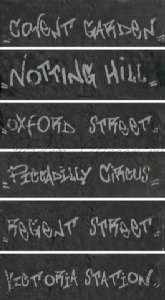 COVENT GARDEN
"NOTTING HILL"
OXFORD STREET
"PICCADILLY CIRCUS"
"REGENT STREET"
VICTORIA STATION.